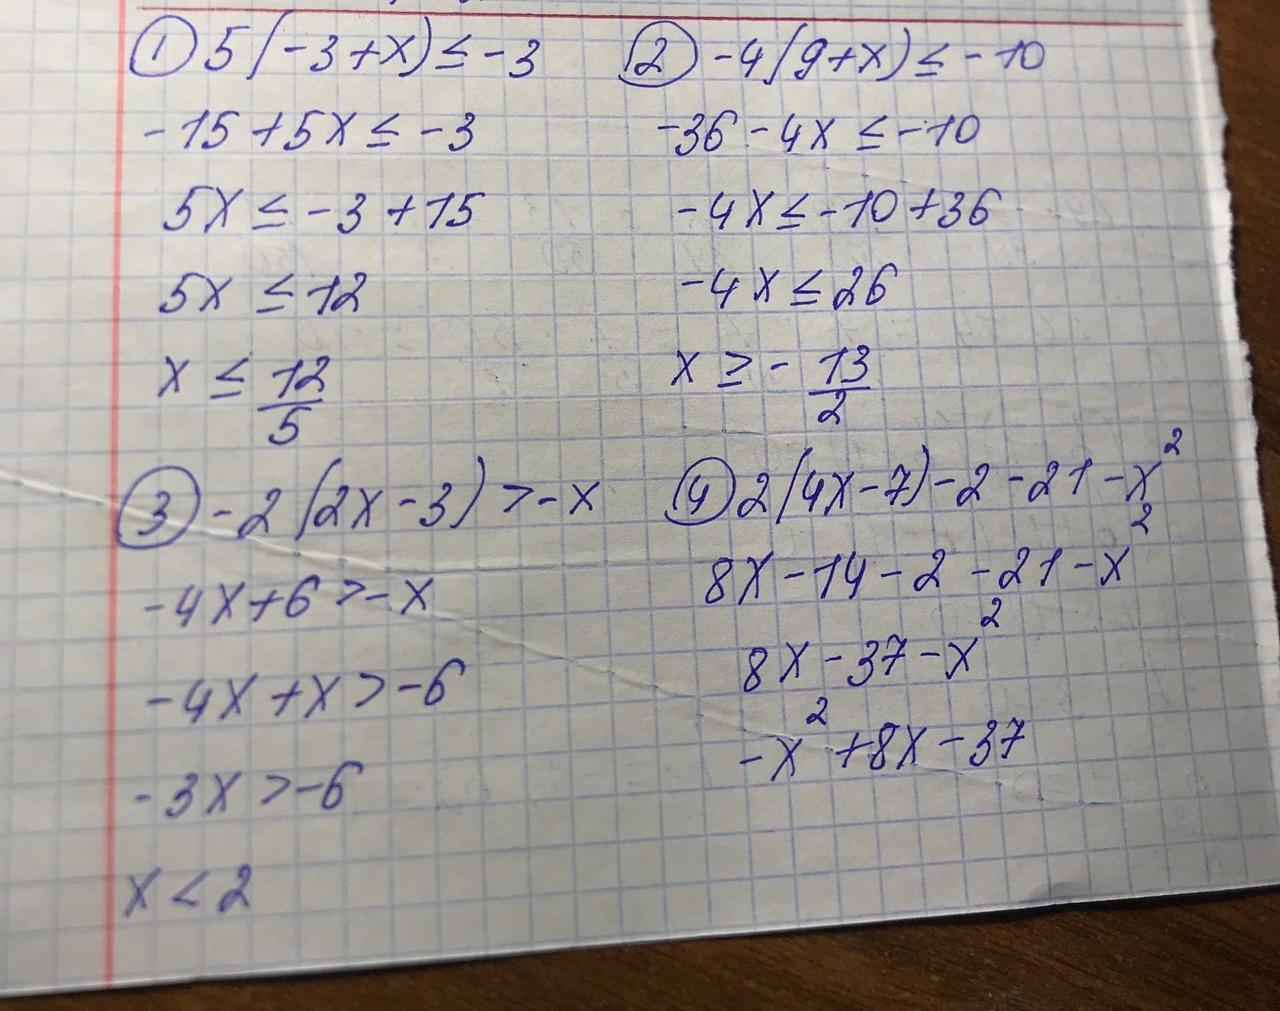 ① 5(-3+x) ≤ -3
-15+5x ≤ -3
5x ≤ -3+15
5x ≤ 12
x ≤ 12/5
② -4(9+x) ≤ -10
-36-4x ≤ -10
-4x ≤ -10+36
-4x ≤ 26
x ≥ - 13/2
③ -2(2x-3) > -x
-4x+6 > -x
-4x+x > -6
-3x > -6
x < 2
④ 2(4x-7)-2-21-x²
8x-14-2-21-x²
8x-37-x²
-x²+8x-37